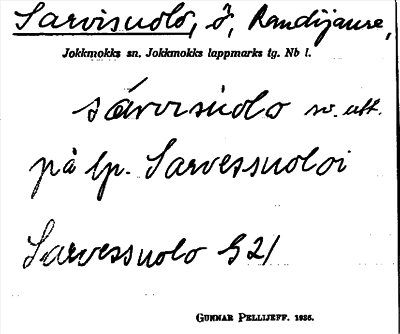 Sarvisuolo, ö, Randijaure,
Jokkmokks sn. Jokkmokks lappmarks tg. Nb l.
sárvisùolo sv. utt.
på lp. Sarvessuoloi
Sarvessuolo G 21
GUNNAR PELLIJEFF. 1936.